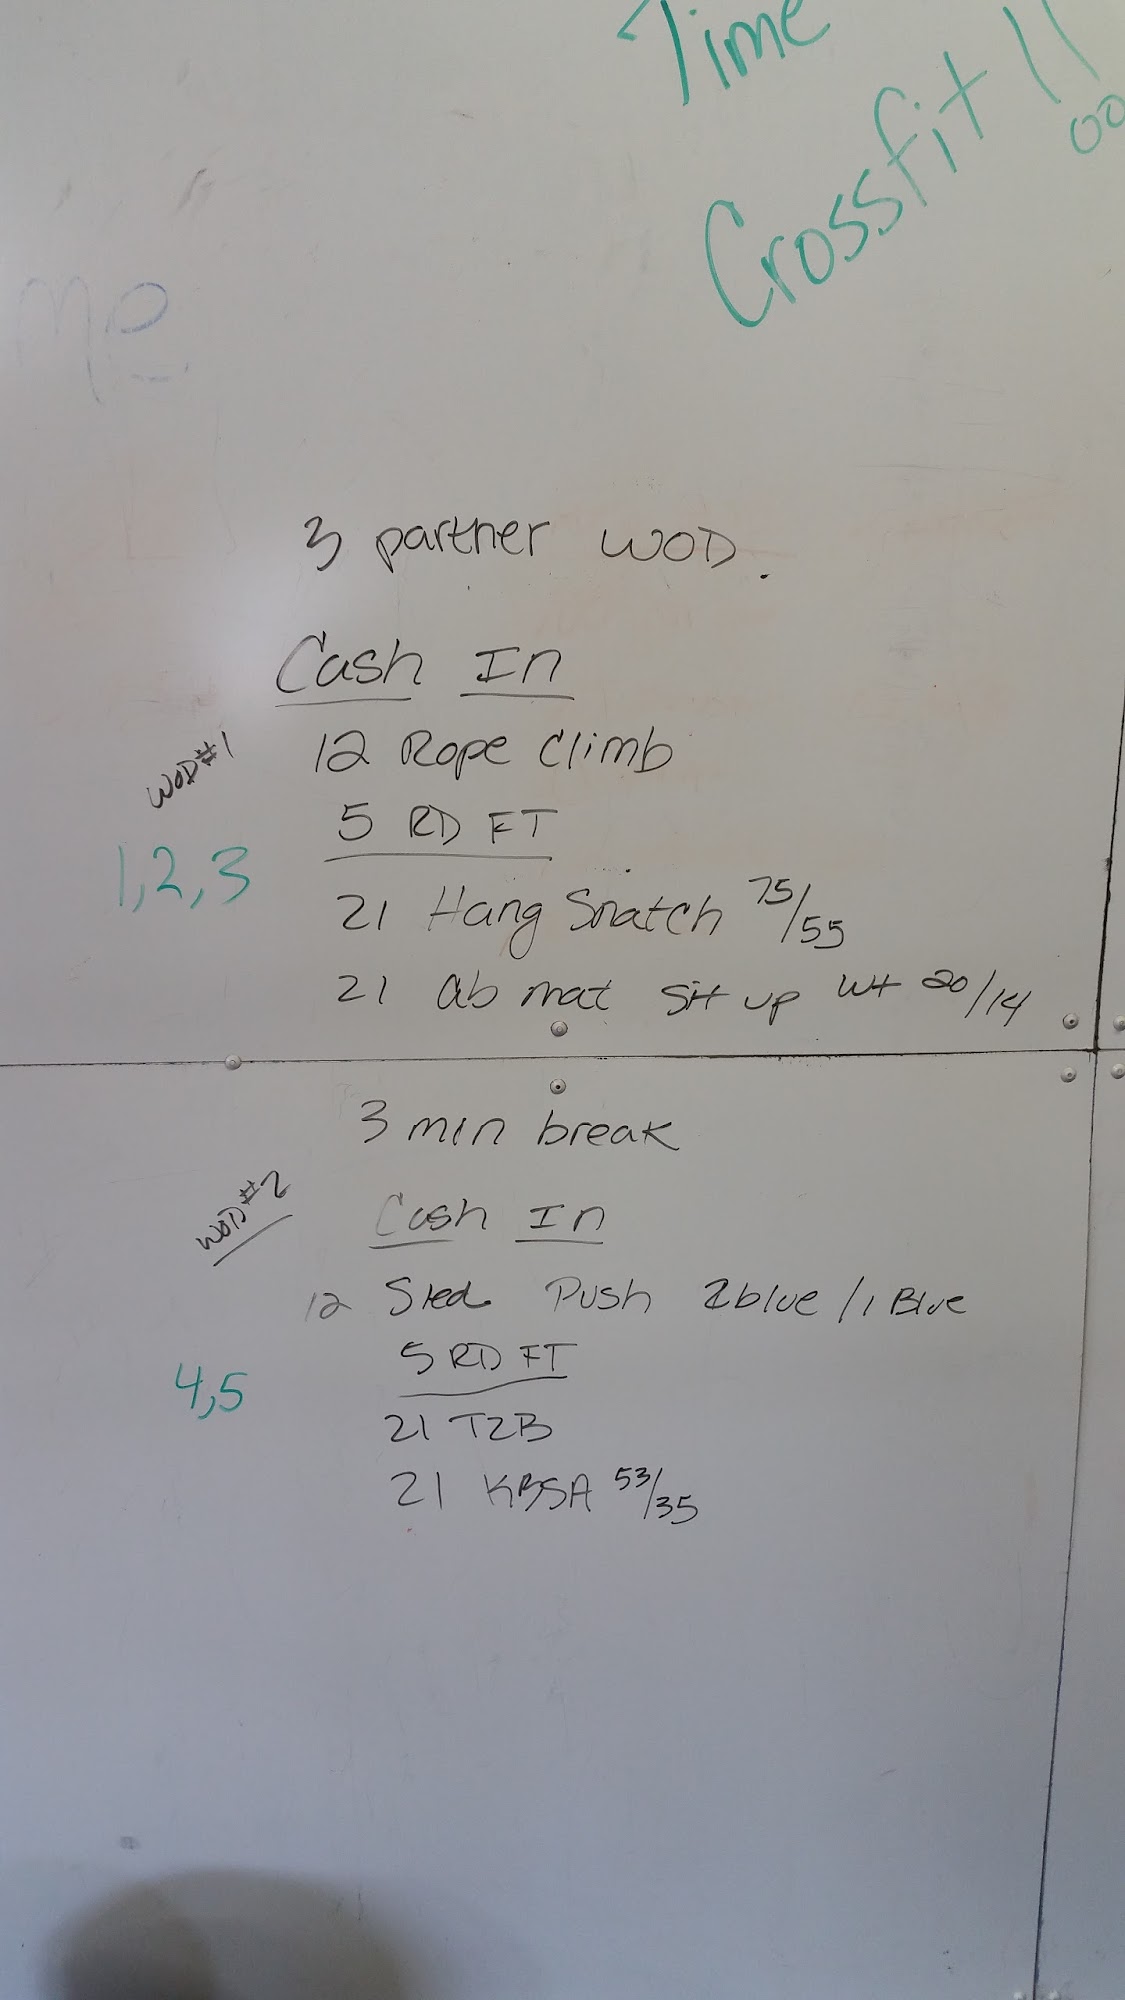 Time
Crossfit !!
me
3 partner WOD.
Cash In
WOD#1
12 Rope Climb
5 RD FT
1,2,3
21 Hang Snatch 75/55
21 ab mat sit up wt 20/14
3 min break
WOD#2
Cash In
12 Sled Push 2blue/1 Blue
5 RD FT
4,5
21 T2B
21 KBSA 53/35